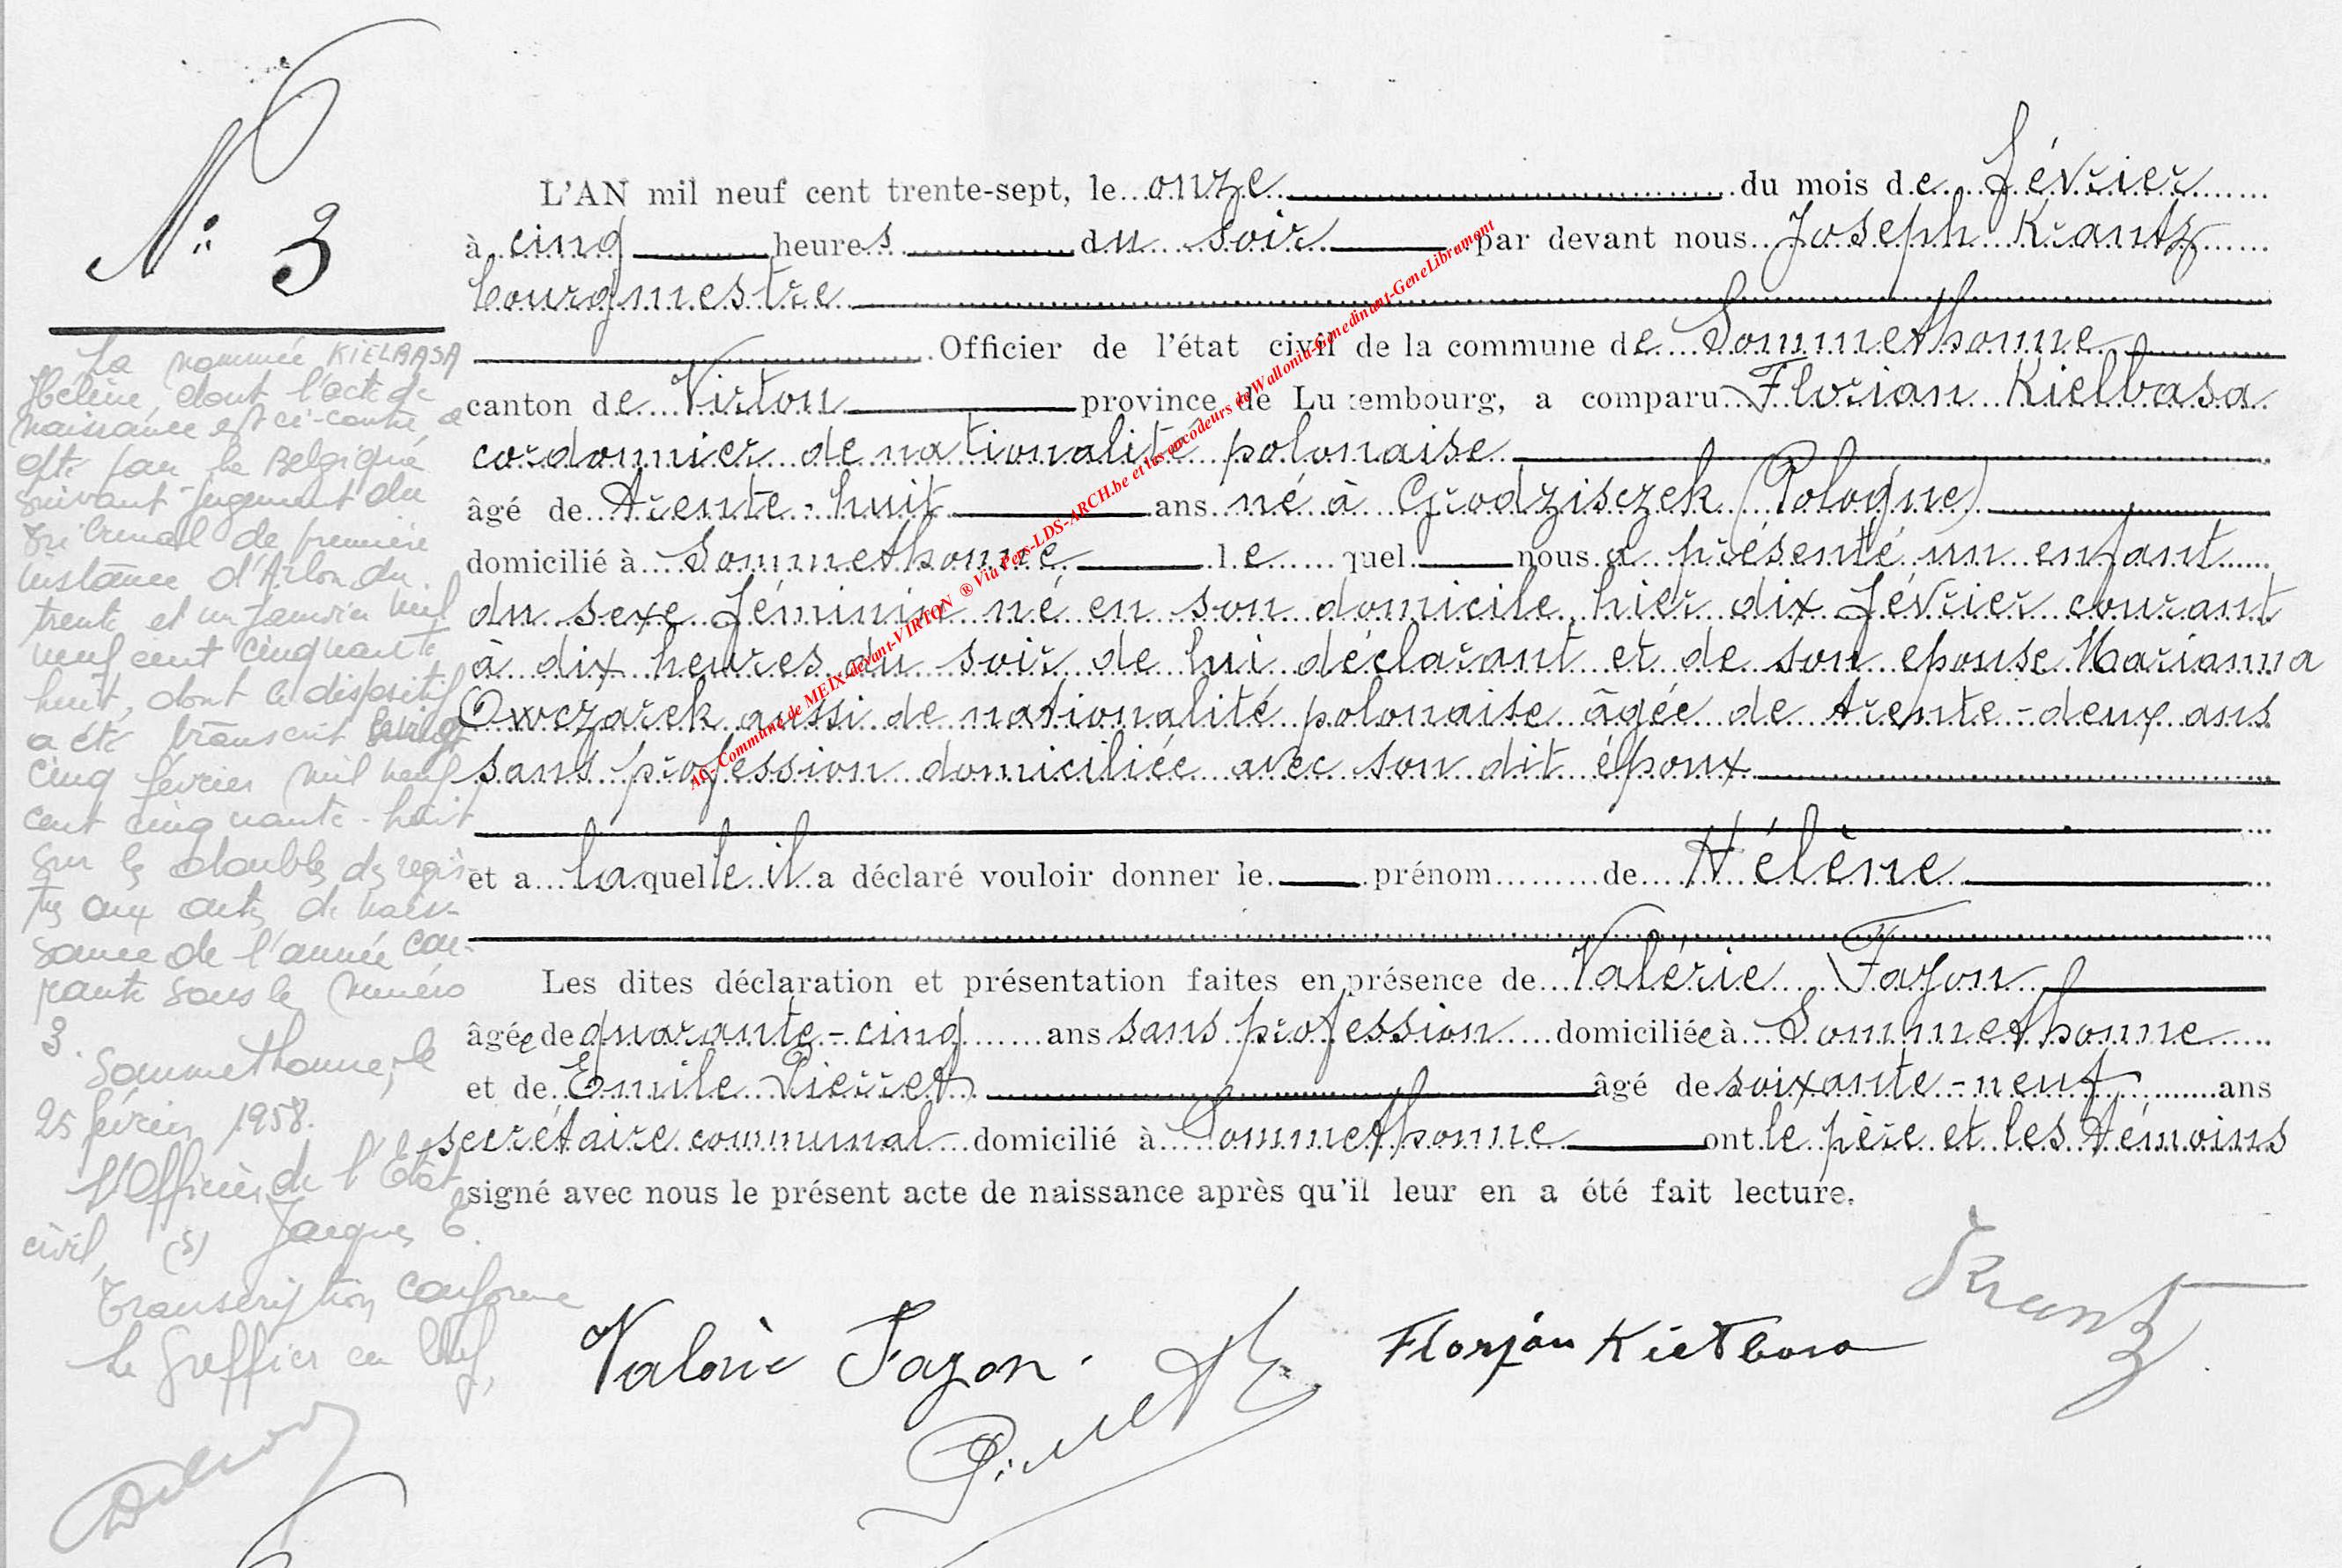 N° 3
La nommée KIELBASA
Hélène, dont l'acte de
naissance est ci-contre, a
opté pour la Belgique
suivant jugement du
tribunal de première
instance d'Arlon du
trente et un janvier mil
neuf cent cinquante
huit, dont le dispositif
a été transcrit le vingt
cinq février mil neuf
cent cinquante-huit
sur les doubles des regis-
tres aux actes de nais-
sance de l'année cou-
rante sous le numéro
3.
Sommethonne, le
25 février 1958.
L'Officier de l'Etat
civil, (s) Jacques
Transcription conforme
Le Greffier en Chef,
L'AN mil neuf cent trente-sept, le onze du mois de février
à cinq heures du soir par devant nous Joseph Krantz
bourgmestre
Officier de l'état civil de la commune de Sommethonne
canton de Virton province de Luxembourg, a comparu Florian Kielbasa
cordonnier de nationalité polonaise
âgé de trente-huit ans né à Grodzisczek (Pologne)
domicilié à Sommethonne lequel nous a présenté un enfant
du sexe féminin né en son domicile, hier dix février courant
à dix heures du soir de lui déclarant et de son épouse Marianna
Owczarek aussi de nationalité polonaise âgée de trente-deux ans
sans profession domiciliée avec son dit époux
et a laquelle il a déclaré vouloir donner le prénom de Hélène
Les dites déclaration et présentation faites en présence de Valérie Fazon
âgée de quarante-cinq ans sans profession domiciliée à Sommethonne
et de Emile Pierret âgé de soixante-neuf ans
secrétaire communal domicilié à Sommethonne ont le père et les témoins
signé avec nous le présent acte de naissance après qu'il leur en a été fait lecture.
Valérie Fazon. Florjan Kiełbasa Krantz
AC Commune de MEIX-devant-VIRTON ® Via Pers-LDS-ARCH.be et les encodeurs de Wallonia-Genedinant-GeneLibramont